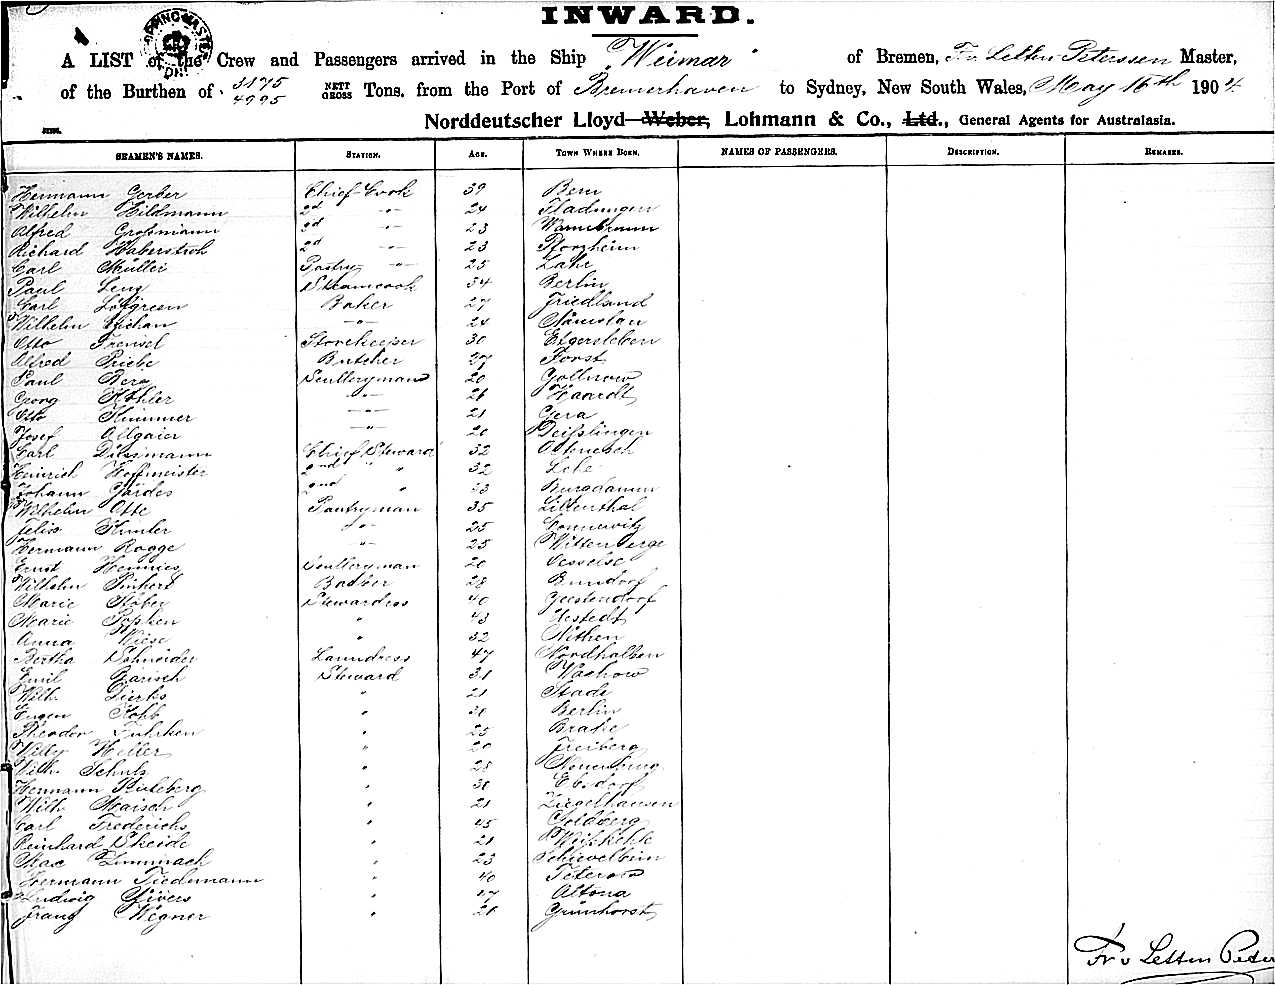 INWARD.
A LIST of the Crew and Passengers arrived in the Ship "Weimar" of Bremen, Fr. v. Letten-Peterssen Master,
of the Burthen of 3175 NETT Tons, from the Port of Bremerhaven to Sydney, New South Wales, May 16th 1904.
4995 GROSS
Norddeutscher Lloyd Weber, Lohmann & Co., Ltd., General Agents for Australasia.
SEAMEN'S NAMES. STATION. AGE. TOWN WHERE BORN. NAMES OF PASSENGERS. DESCRIPTION. REMARKS.
Hermann Gerber Chief-Cook 39 Bern
Wilhelm Hildmann 2d -"- 24 Fladungen
Alfred Großmann 2d -"- 23 Warmbrunn
Richard Haberstroh 2d -"- 23 Pforzheim
Carl Müller Pastry -"- 25 Lahr
Paul Lenz Steamcook 34 Berlin
Carl Löfgreen Baker 27 Friedland
Wilhelm -"- 24 Namslau
Otto Frensel Storekeeper 30 Etgersleben
Alfred Priebe Butcher 27 Forst
Paul Berg Scullerymans 20 Gollnow
Georg Köhler -"- 26 Haardt
Otto Kümmer -"- 21 Gera
Josef Allgaier -"- 20 Deißlingen
Carl Dillmann Chief Steward 32
Heinrich Hoffmeister 2nd " " 32 Lehe
Johann Gärdes 2nd " 23 Burgdamm
Wilhelm Otte Pantryman 35 Lilienthal
Felix -"- 25 Connewitz
Hermann Rogge -"- 25 Wittenberge
Ernst Hennies Sculleryman 20
Wilhelm Pinkert Barber 28
Marie Stöber Stewardess 40 Geestendorf
Marie Popken " 43 Uestedt
Anna Wiese " 32 Nithen
Bertha Schneider Laundress 47 Nordhalben
Emil Barisch Steward 31 Waskow
Wilh. Dierks " 21 Stade
Eugen Kobb " 20 Berlin
Theodor Fuhrken " 25 Brake
Willy Heller " 20 Freiberg
Wilh. Schulz " 28 Neuenburg
Hermann " 30 Ebsdorf
Wilh. Maisch " 21 Ziegelhausen
Carl Frederichs " 45 Goldberg
Reinhard Skeide " 21
Max Zimmnach " 23 Schievelbein
Hermann Tiedemann " 40 Teterow
Ludwig Sivers " 27 Altona
Franz Wegner " 21 Grünhorst
Fr v Letten Peter